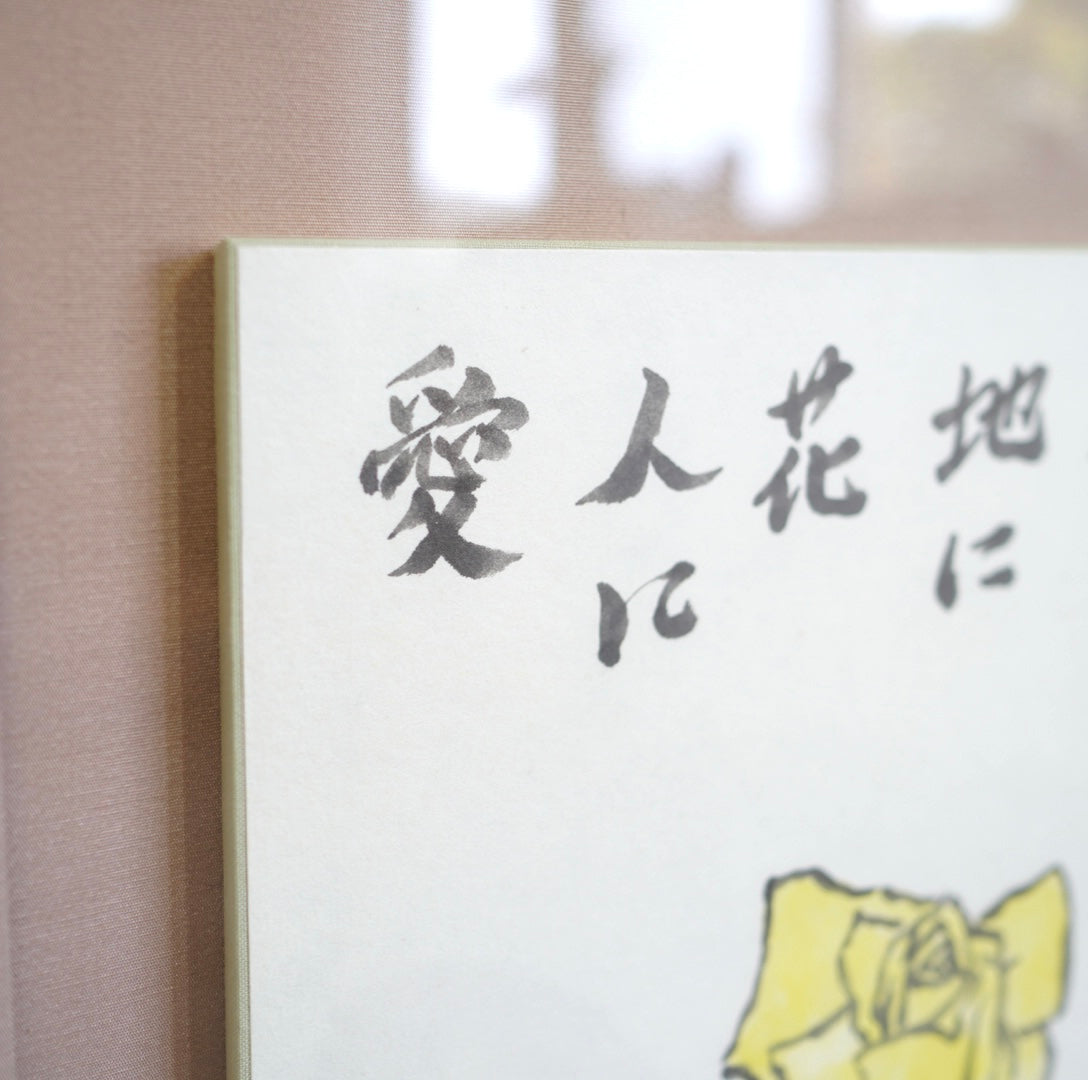 地に
花
人に
愛